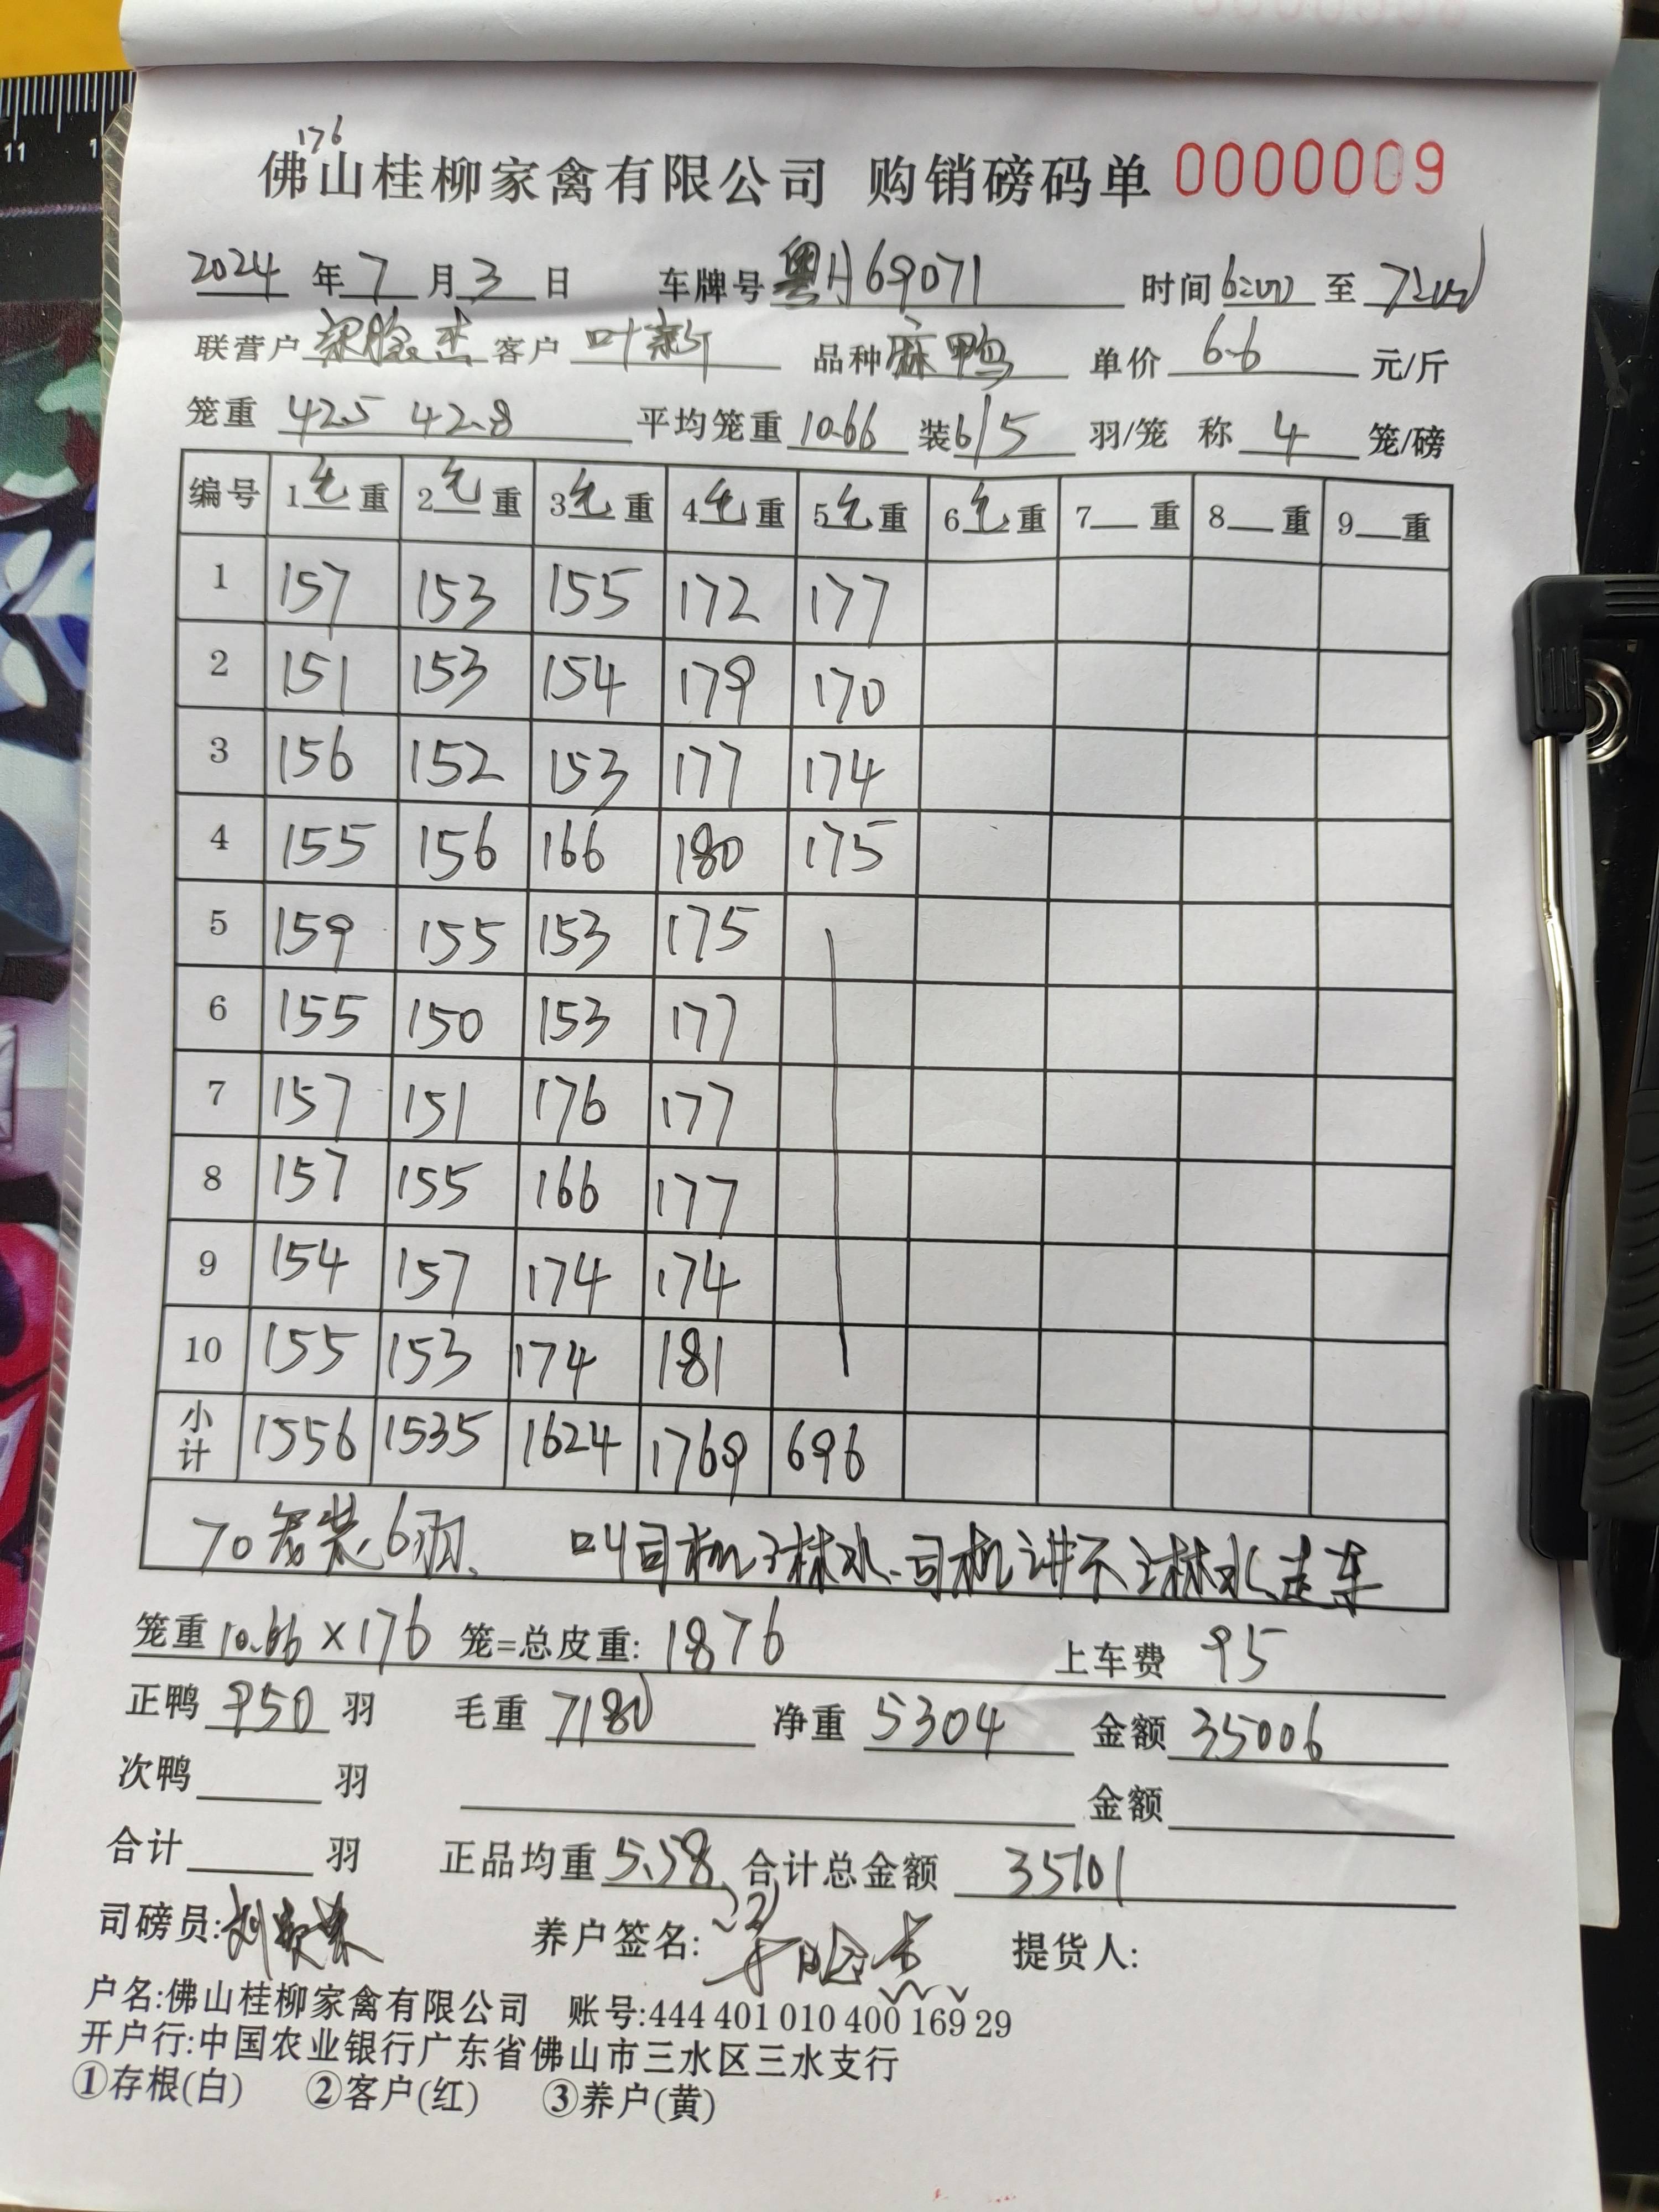 176
佛山桂柳家禽有限公司 购销磅码单 0000009
2024 年 7 月 3 日 车牌号 粤H69071 时间 6:00 至 7:00
联营户 客户 叶新 品种 麻鸭 单价 6.6 元/斤
笼重 42.5 42.8 平均笼重 10.66 装 6/5 羽/笼 称 4 笼/磅
编号 1毛重 2毛重 3毛重 4毛重 5毛重 6毛重 7 重 8 重 9 重
1 157 153 155 172 177
2 151 153 154 179 170
3 156 152 153 177 174
4 155 156 166 180 175
5 159 155 153 175
6 155 150 153 177
7 157 151 176 177
8 157 155 166 177
9 154 157 174 174
10 155 153 174 181
小计 1556 1535 1624 1769 696
70笼装6羽、 叫司机淋水.司机讲不淋水走车
笼重 10.66 × 176 笼=总皮重: 1876 上车费 95
正鸭 950 羽 毛重 7180 净重 5304 金额 35006
次鸭 羽 金额
合计 羽 正品均重 5.58 合计总金额 35101
司磅员: 养户签名: 提货人:
户名:佛山桂柳家禽有限公司 账号:444 401 010 400 169 29
开户行:中国农业银行广东省佛山市三水区三水支行
①存根(白) ②客户(红) ③养户(黄)
11